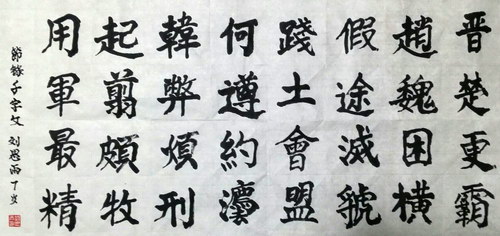 晋楚更霸
趙魏困横
假途滅虢
踐土會盟
何遵約灋
韓弊煩刑
起翦頗牧
用軍最精
節錄千字文 刘思雨